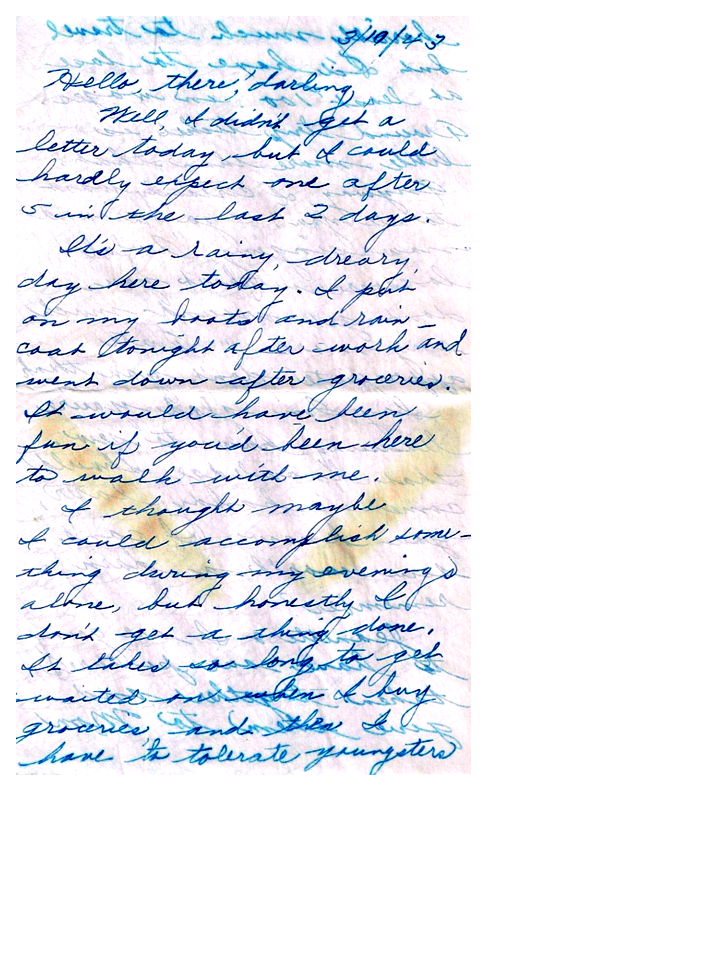 3/19/43
Hello, there, darling,
Well, I didn't get a
letter today, but I could
hardly expect one after
5 in the last 2 days.
It's a rainy, dreary,
day here today. I put
on my boots and rain-
coat tonight after work and
went down after groceries.
It would have been
fun if you'd been here
to walk with me.
I thought maybe
I could accomplish some-
thing during my evenings
alone, but honestly I
don't get a thing done.
It takes so long to get
waited on when I buy
groceries and then I
have to tolerate youngsters